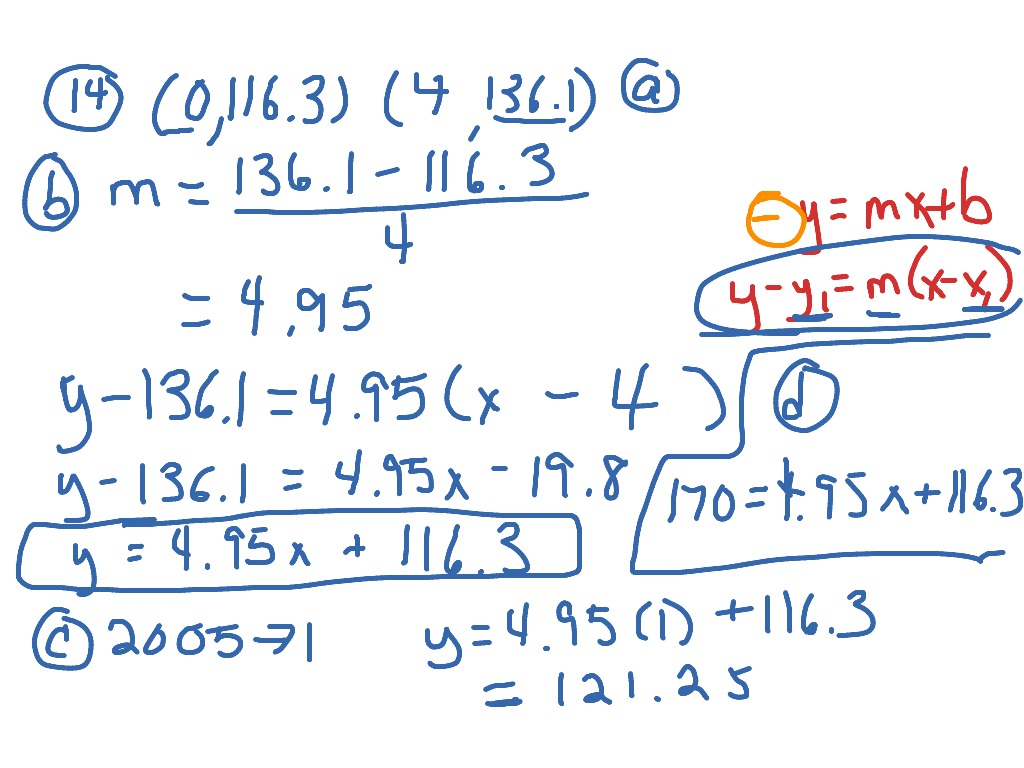 14 (0,116.3) (4, 136.1) a
b m = 136.1 - 116.3 / 4
= 4.95
y = mx+b
y - y₁ = m(x - x₁)
y - 136.1 = 4.95(x - 4)
y - 136.1 = 4.95x - 19.8
y = 4.95x + 116.3
d
170 = 4.95x + 116.3
c 2005 → 1
y = 4.95(1) + 116.3
= 121.25